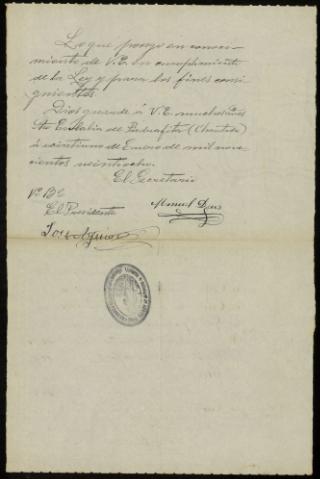 Lo que pongo en conoci-
miento de V.E. en cumplimiento
de la Ley y para los fines consi-
guientes.
Dios guarde á V.E. muchos años
Sta Eulalia de (Chantada)
á veintiuno de Enero de mil nove-
cientos veintiocho.
El Secretario
Vº Bº
El Presidente
Manuel
José